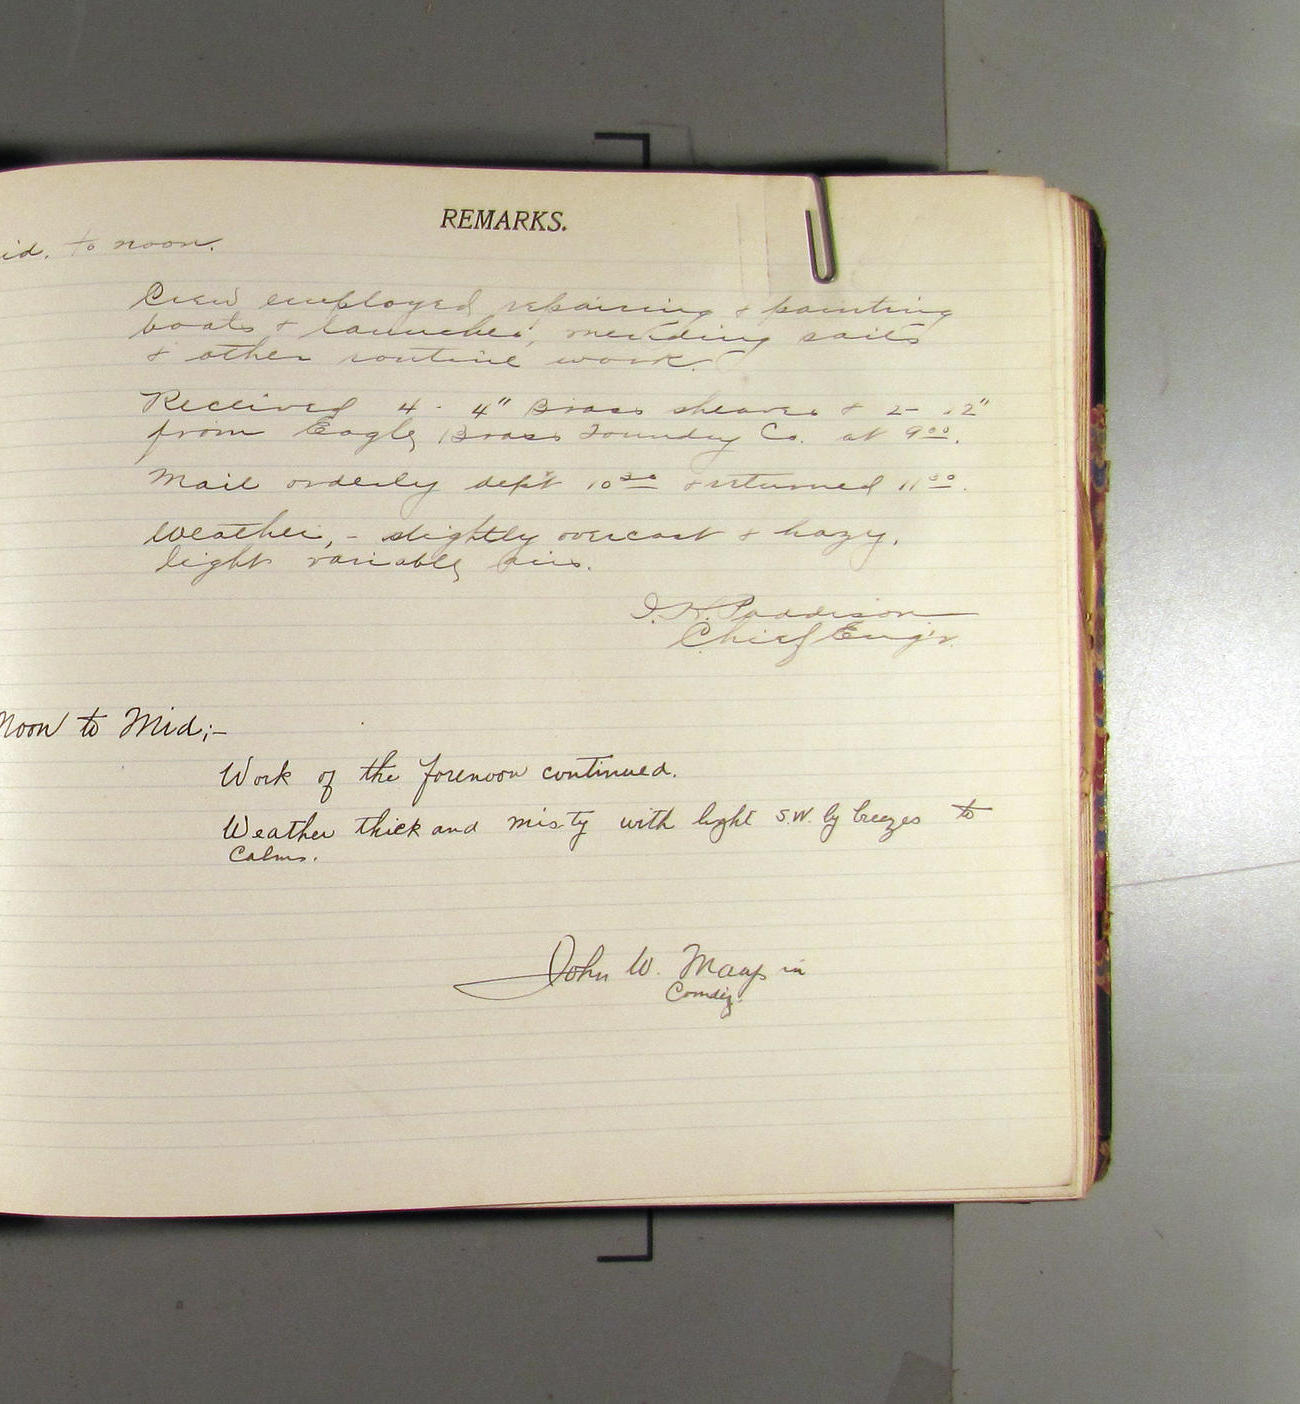 REMARKS.
id. to noon.
Crew employed repairing & painting
boats & launches, mending sails
& other routine work.
Received 4 - 4" Brass sheaves & 2- 2"
from Eagle Brass Foundry Co. at 9⁰⁰.
Mail orderly dep't 10³⁰ & returned 11⁰⁰.
Weather, - slightly overcast & hazy,
light variable airs.
Paddison
Chief Eng'r.
Noon to Mid;-
Work of the forenoon continued.
Weather thick and misty with light S.W. by breezes to
Calms.
John W.
Comd'g.